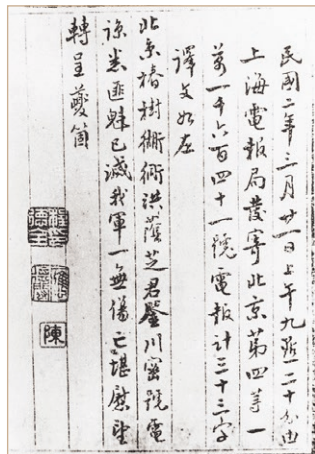 民國二年三月廿一日上午九點二十分由
上海電報局發寄北京第四等一
萬一千六百四十一號電報計三十三字
譯文如左
北京椿樹衚衕洪蔭芝君鑒川密號電
諒悉匪魁已滅我軍一無傷亡堪慰望
轉呈夔箇
陳